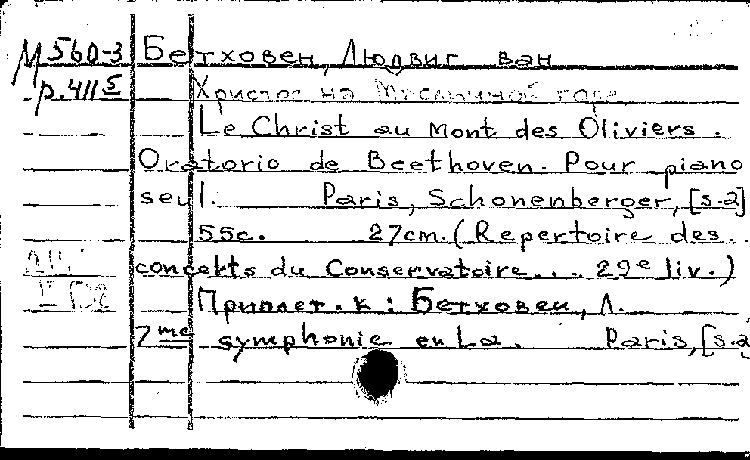 М 560-3 Бетховен, Людвиг ван
р.411⁵ Христос на Масличной горе
Le Christ au Mont des Oliviers.
Oratorio de Beethoven. Pour piano
seul. Paris, Schonenberger, [s.a]
55c. 27cm. (Repertoire des
concerts du Conservatoire... 29e liv.)
Приплет. к: Бетховен, Л.
7me symphonie en La. Paris, [s.a